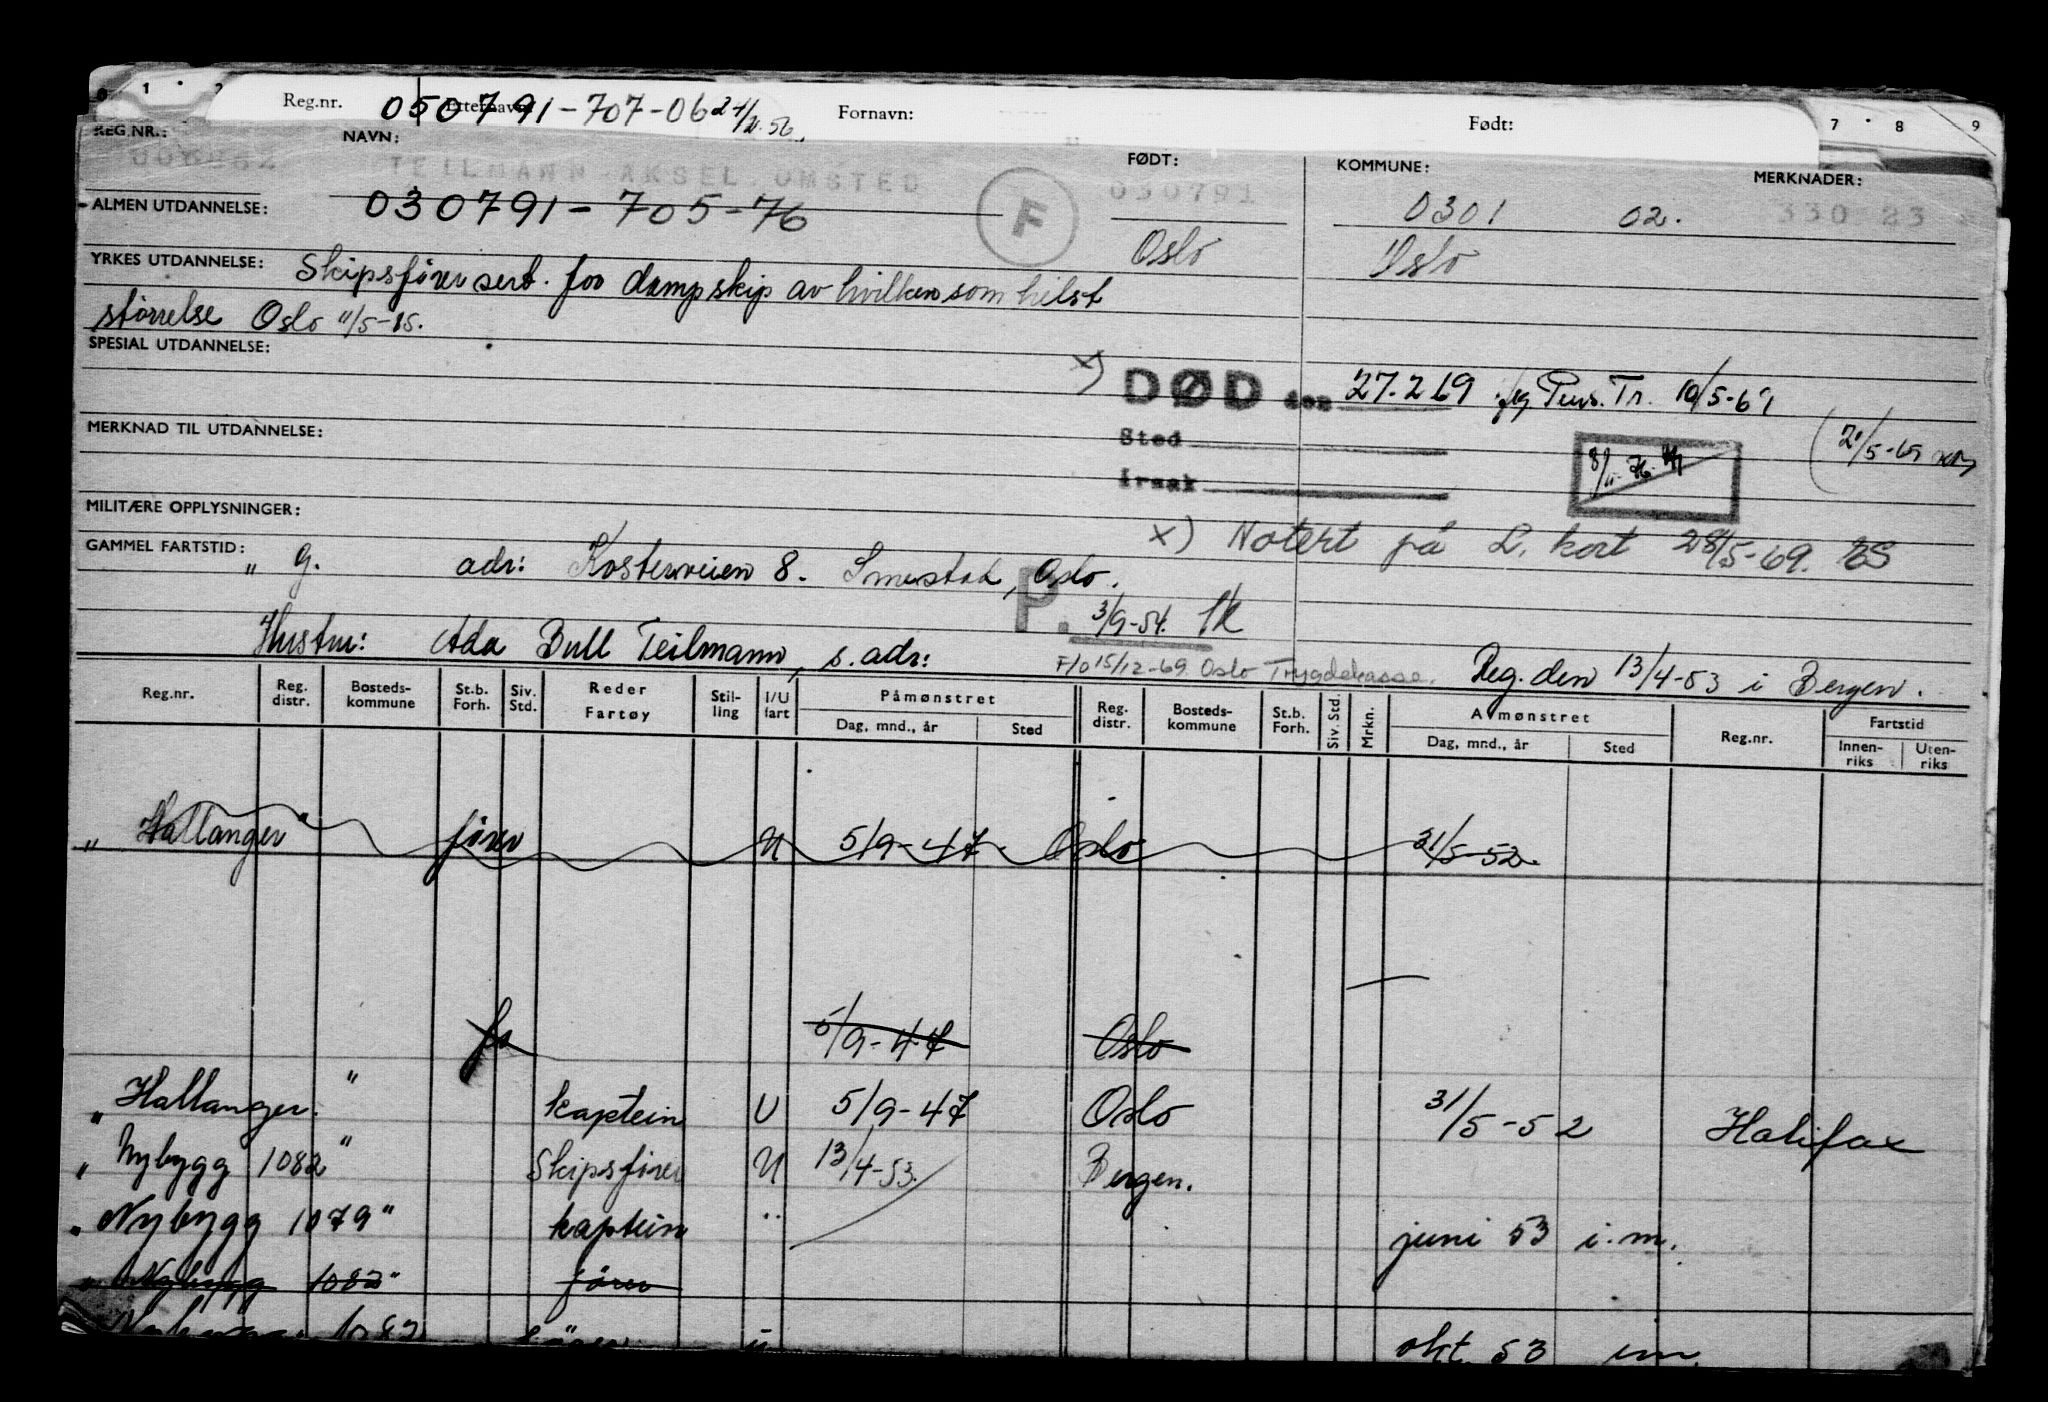 0 1 2 7 8 9
Reg.nr. Etternavn Fornavn: Født:
050791-707-06
REG.NR.: NAVN: FØDT: KOMMUNE: MERKNADER:
TEILMANN AKSEL OMSTED 030791 0301 02. 330 23
ALMEN UTDANNELSE: 030791-705-76 F Oslo Oslo
YRKES UTDANNELSE: Skipsfører sert. for dampskip av hvilken som helst
størrelse Oslo 11/5-15.
SPESIAL UTDANNELSE:
x) DØD den 27.2 69 Tr. 10/5-69
MERKNAD TIL UTDANNELSE: Sted
21/5-69
MILITÆRE OPPLYSNINGER:
x) Notert på L. kort 28/5-69. ES
GAMMEL FARTSTID: " g. adr: Kosterveien 8. Smestad, Oslo.
P. 3/9-54.
Hustru: Ada Bull Teilmann, s. adr:
F/o 15/12-69 Oslo Trygdekasse. Reg. den 13/4-53 i Bergen.
Reg.nr. Reg. distr. Bosteds- kommune St.b. Forh. Siv. Std. Reder Fartøy Stil- ling I/U fart Påmønstret Reg. distr. Bosteds- kommune St.b. Forh. Siv. Std. Mrkn. Avmønstret Reg.nr. Fartstid
Dag, mnd., år Sted Dag, mnd., år Sted Innen- riks Uten- riks
" Hallanger " fører U 5/9-47. Oslo 31/5-52.
fø 5/9-47 Oslo
" Hallanger. " kaptein U 5/9-47 Oslo 31/5-52 Halifax
" Nybygg 1082 " Skipsfører U 13/4-53. Bergen.
" Nybygg 1079 " kaptein " juni 53 i.m.
" Nybygg 1082 " fører
Nybygg 1082 okt. 53 im